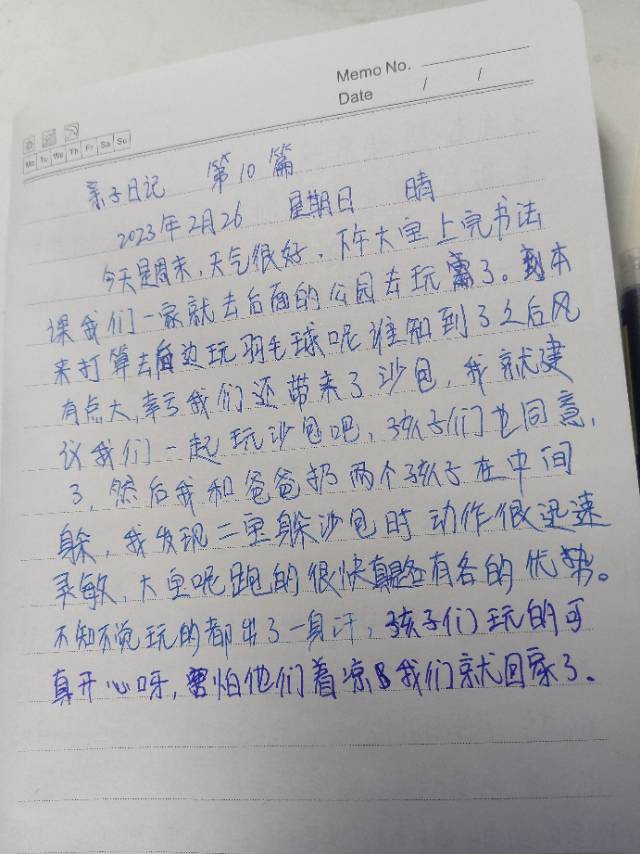 Memo No.
Date / /
Mo Tu We Th Fr Sa Su
亲子日记 第10篇
2023年2月26 星期日 晴
今天是周末,天气很好,下午大宝上完书法
课我们一家就去后面的公园去玩了。本
来打算去边玩羽毛球呢谁知到了之后风
有点大,幸亏我们还带来了沙包,我就建
议我们一起玩沙包吧,孩子们也同意,
了,然后我和爸爸扔两个孩子在中间
躲,我发现二宝躲沙包时动作很迅速
灵敏,大宝呢跑的很快真是各有各的优势。
不知不觉玩的都出了一身汗,孩子们玩的可
真开心呀,害怕他们着凉我们就回家了。